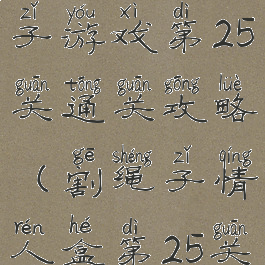 zǐ yóu xì dì
子游戏第25
guān tōng guān gōng lüè
关通关攻略
gē shéng zǐ qíng
（割绳子情
rén hé dì guān
人盒第25关